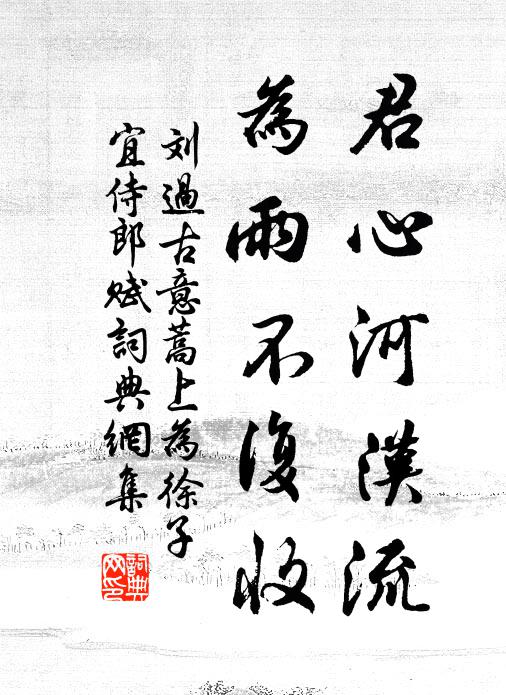 君心河漢流
為雨不復收
刘過古意蒿上為徐子
宜侍郎赋詞典網集
詞典网印